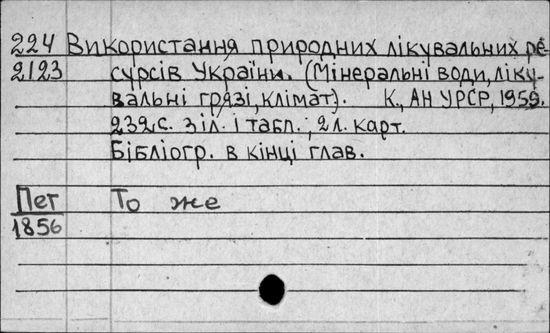 224 Використання природних лікувальних ре-
2123 сурсів України. (Мінеральні води, ліку-
вальні грязі, клімат). К., АН УРСР, 1959.
232 с. з іл. і табл.; 2 л. карт.
Бібліогр. в кінці глав.
Пет То же
1856